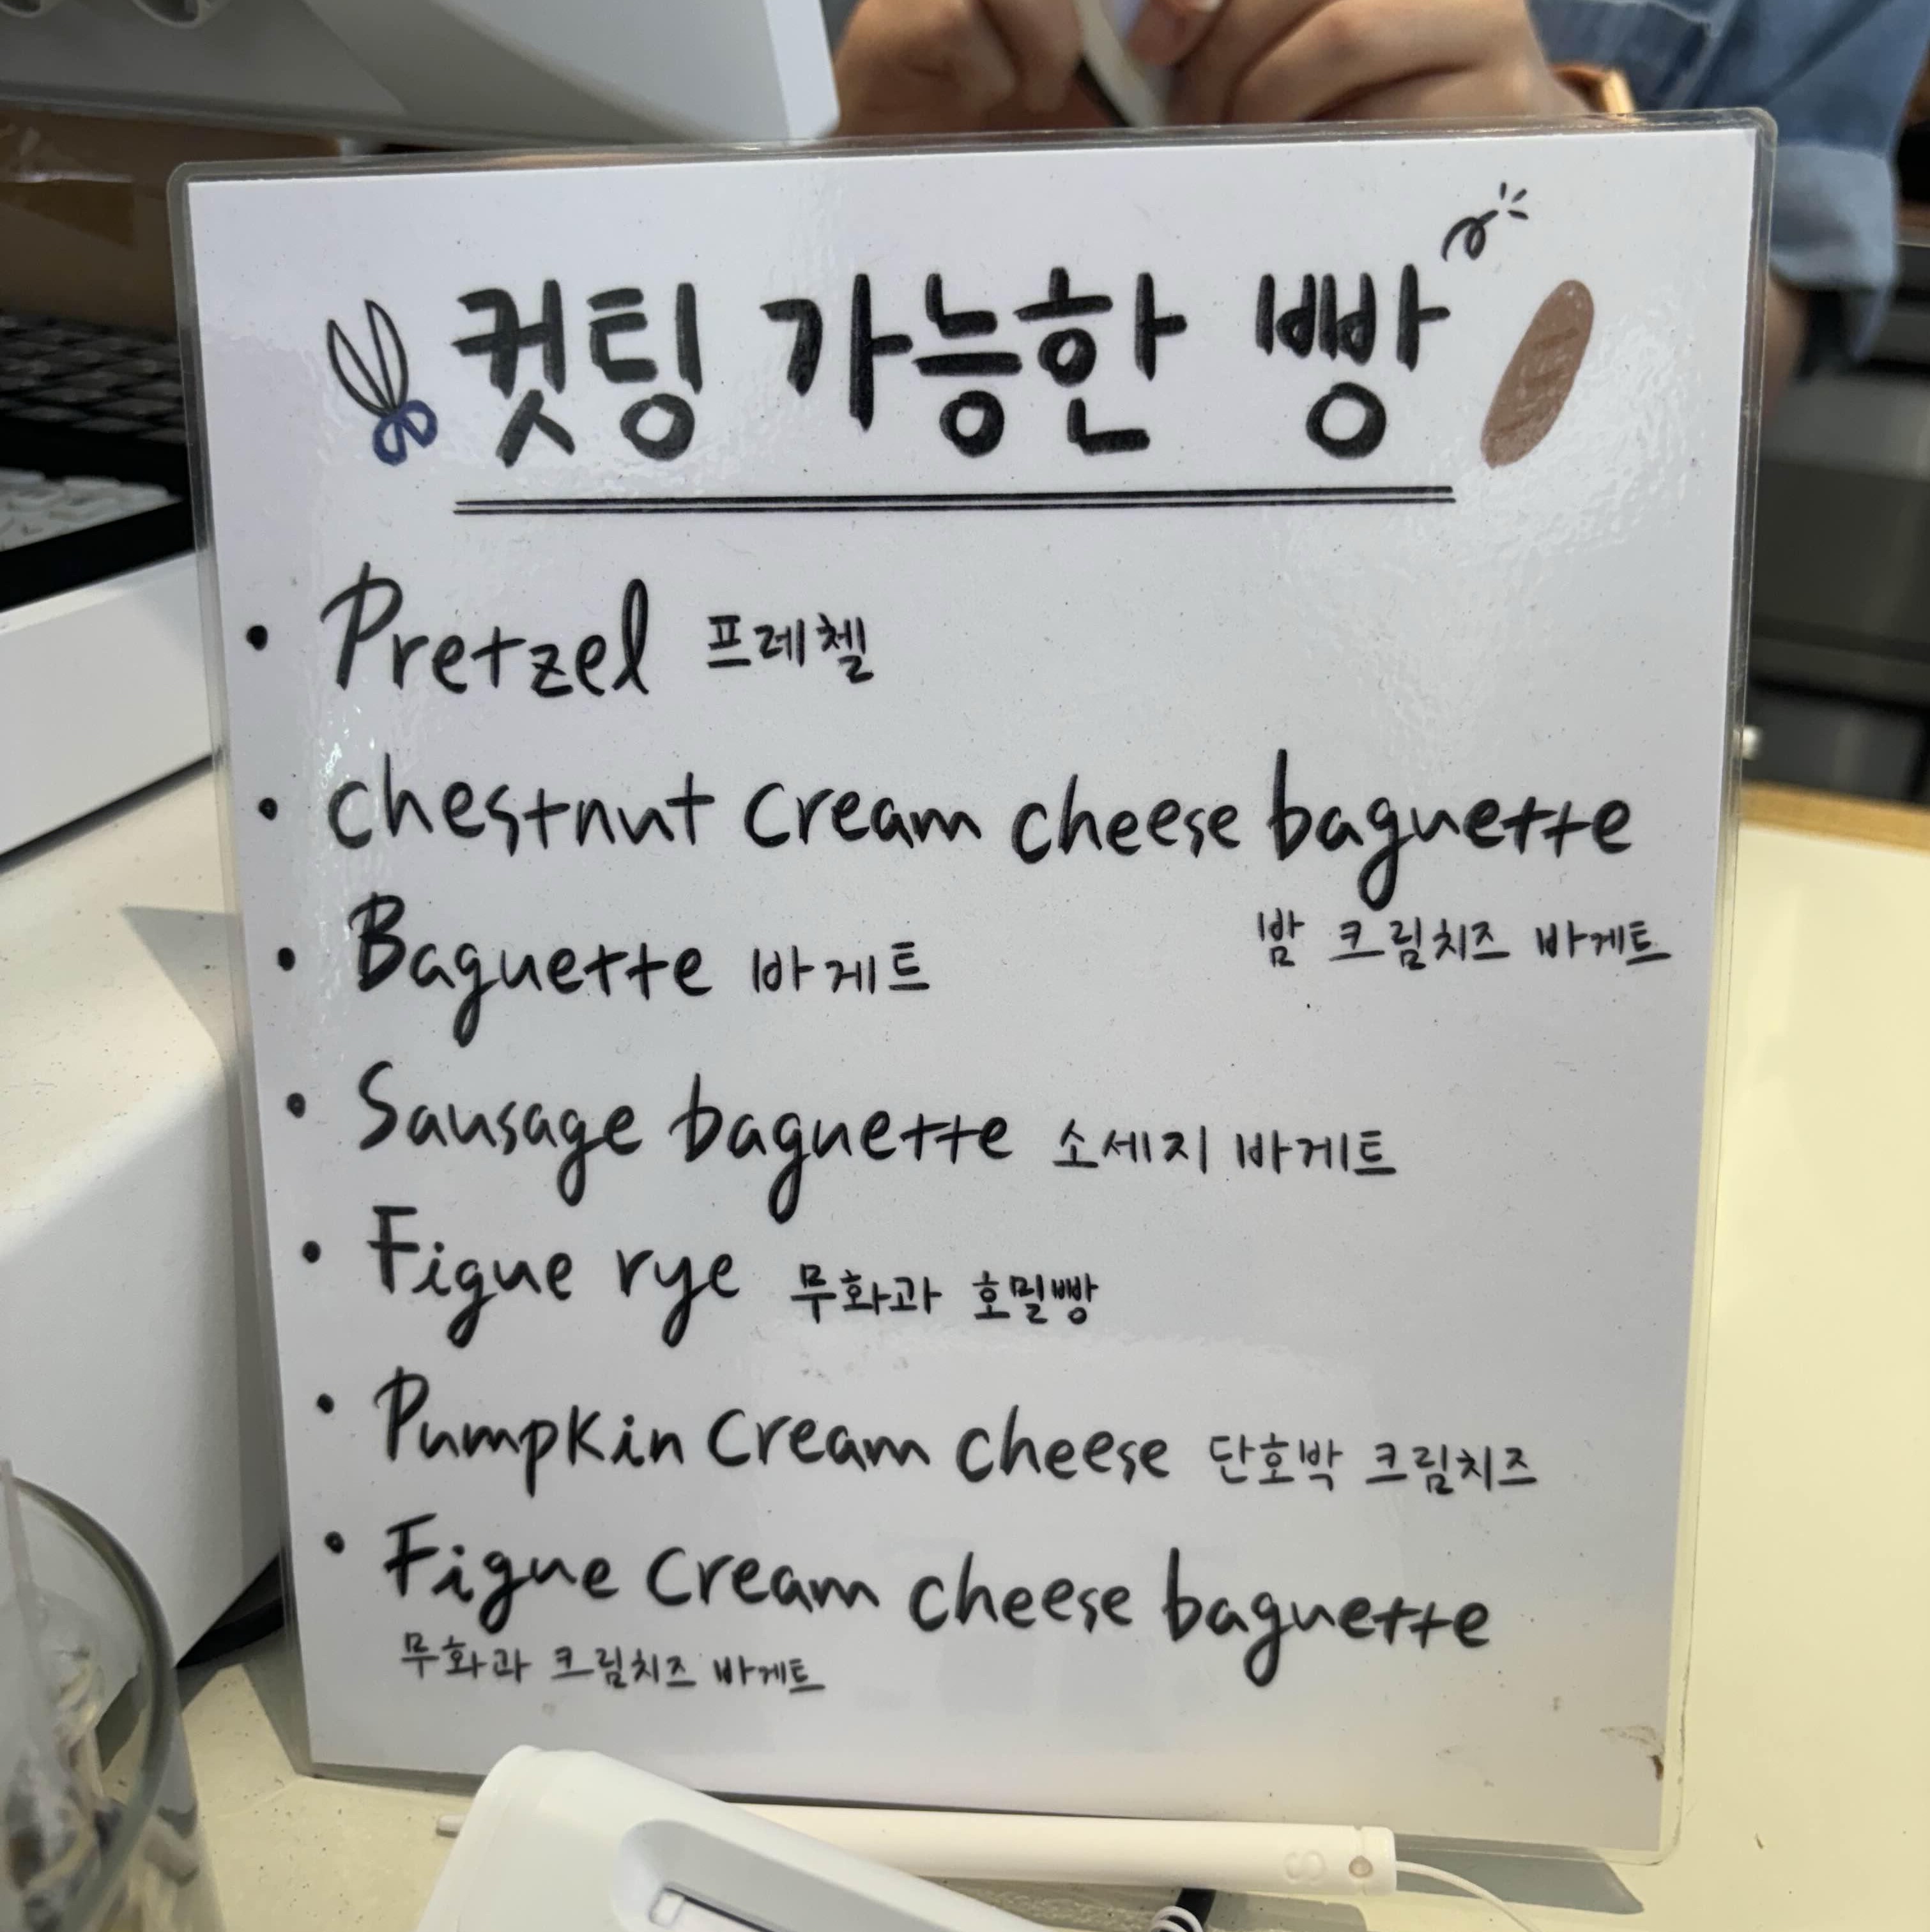 컷팅 가능한 빵
• Pretzel 프레첼
• chestnut cream cheese baguette
밤 크림치즈 바게트
• Baguette 바게트
• Sausage baguette 소세지 바게트
• Figue rye 무화과 호밀빵
• Pumpkin cream cheese 단호박 크림치즈
• Figue cream cheese baguette
무화과 크림치즈 바게트